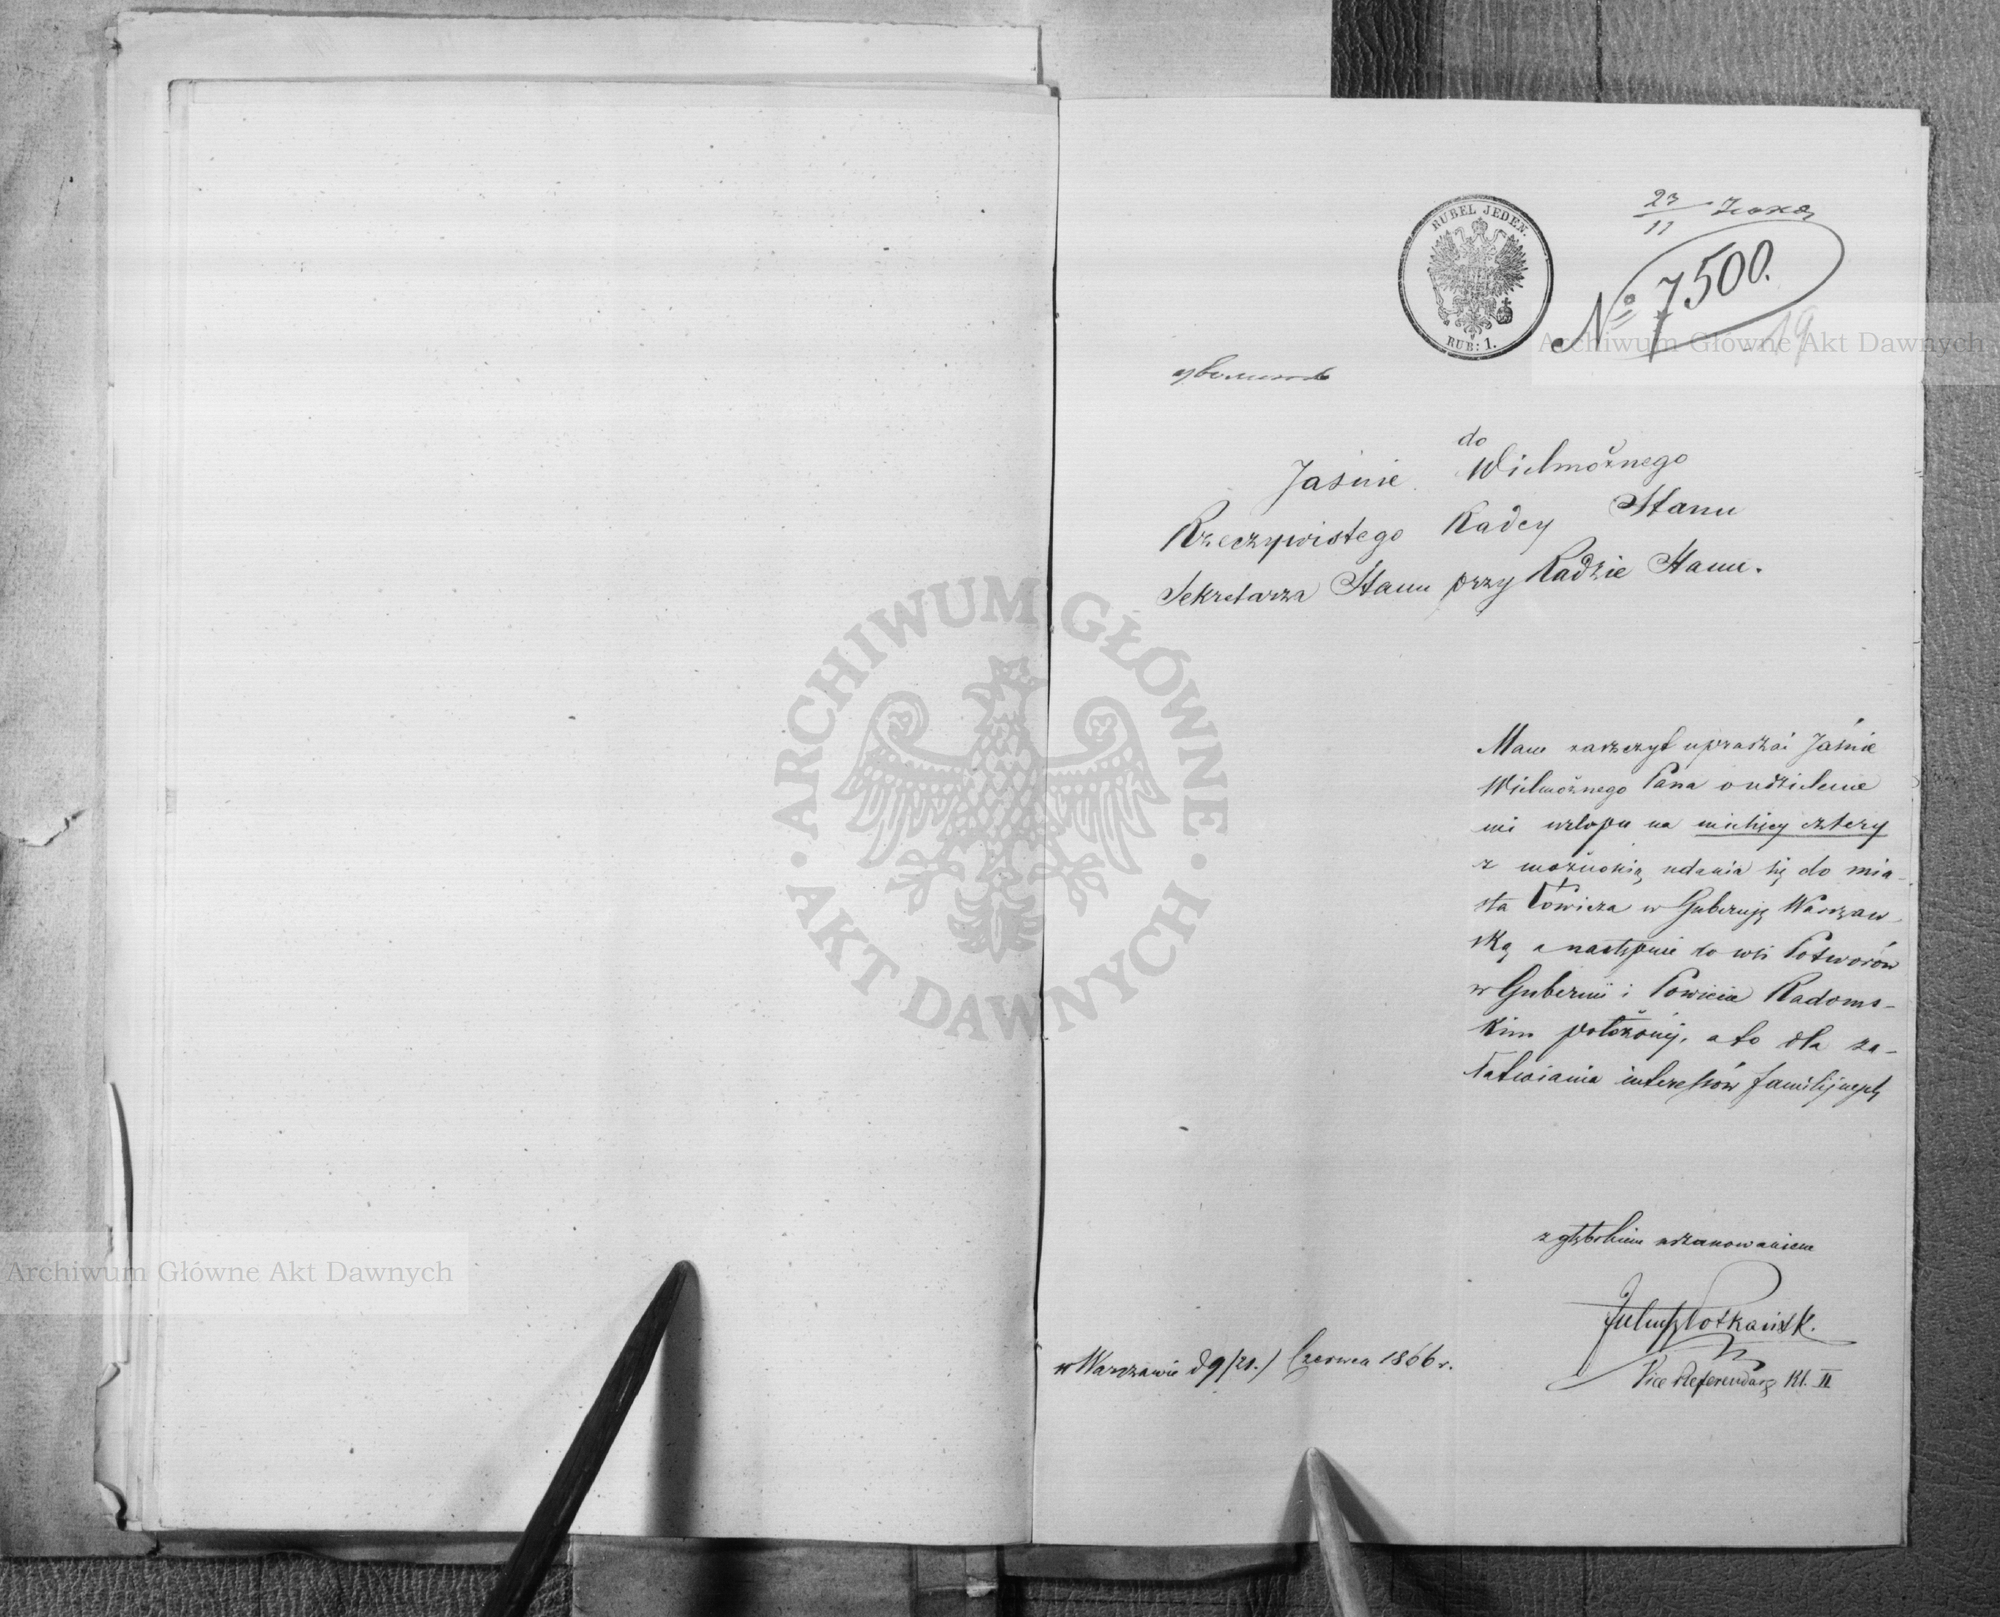 RUBEL JEDEN.
RUB: 1.
23/11 Іюня
№ 7500.
19
Archiwum Główne Akt Dawnych
do
Jaśnie Wielmożnego
Rzeczywistego Radcy Stanu
Sekretarza Stanu przy Radzie Stanu.
ARCHIWUM GŁÓWNE · AKT DAWNYCH ·
Mam zaszczyt upraszać Jaśnie
Wielmożnego Pana o udzielenie
mi urlopu na miesięcy cztery
z możnością udania się do mia-
sta Łowicza w Gubernję Warszaw-
ską a następnie do wsi Potworów
w Gubernii i Powiecie Radoms-
kim położonéj, a to dla za-
łatwiania interessów familijnych
z głębokiem uszanowaniem
Juliusz Potkański.
Vice Referendarz Kl. II
w Warszawie d 9/21./ Czerwca 1866 r.
Archiwum Główne Akt Dawnych